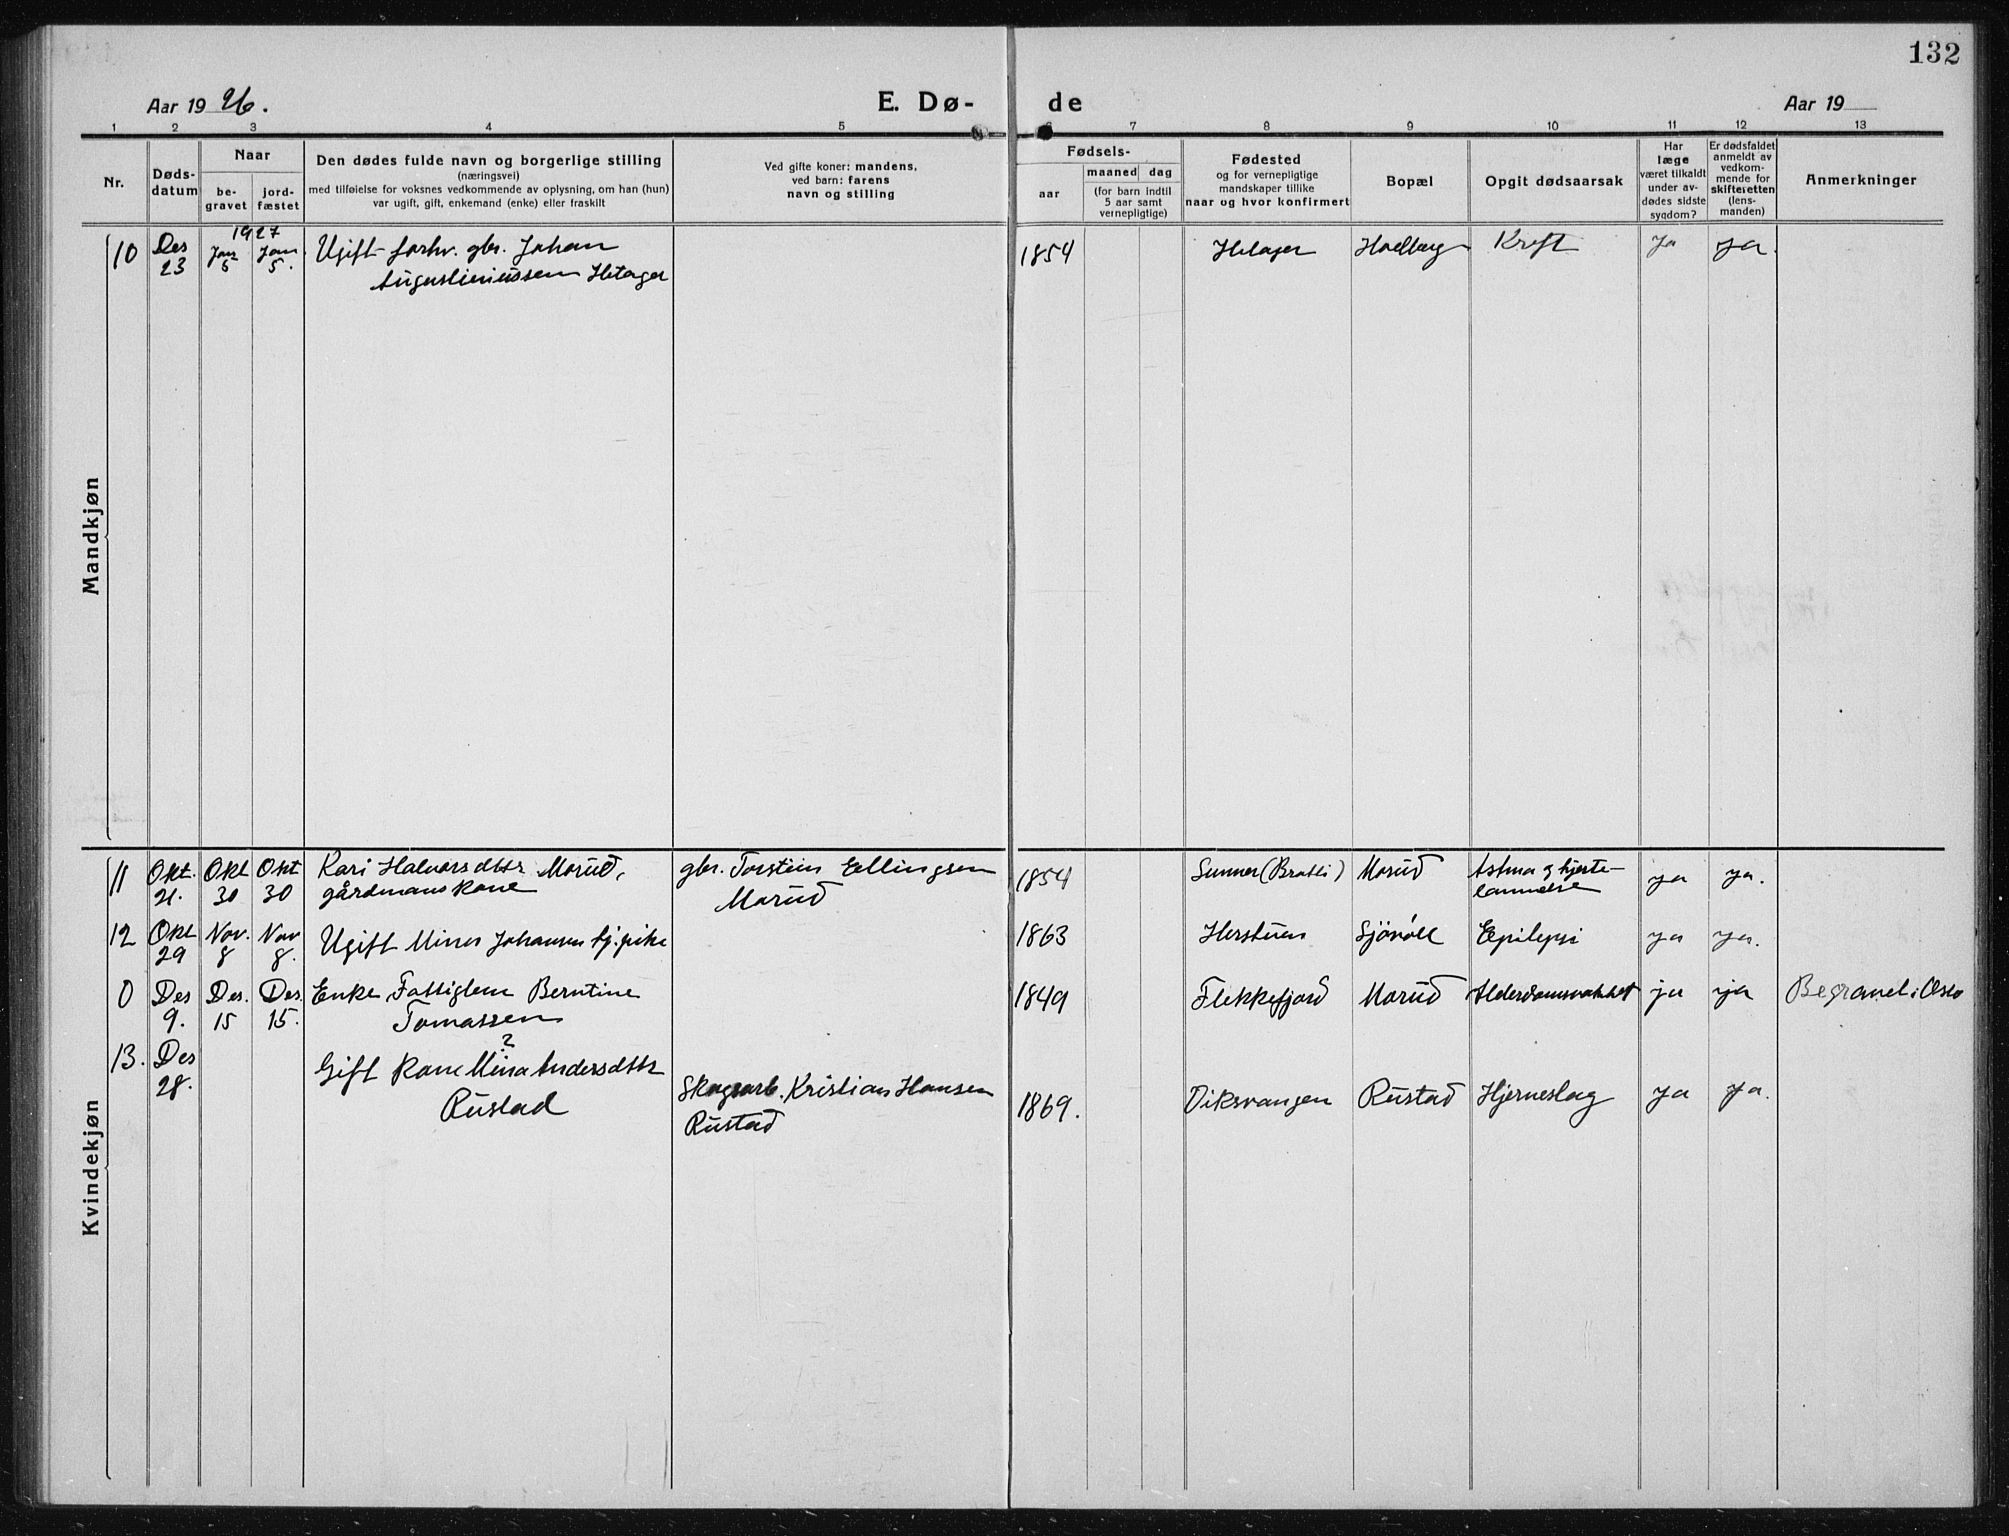 132
Aar 1926.
E. Dø-
de
Aar 19
1 2 3 4 5 6 7 8 9 10 11 12 13
Nr.
Døds-
datum
Naar
be-
gravet
jord-
fæstet
Den dødes fulde navn og borgerlige stilling
(næringsvei)
med tilføielse for voksnes vedkommende av oplysning, om han (hun)
var ugift, gift, enkemand (enke) eller fraskilt
Ved gifte koner: mandens,
ved barn: farens
navn og stilling
Fødsels-
aar
maaned dag
(for barn indtil
5 aar samt
vernepligtige)
Fødested
og for vernepligtige
mandskaper tillike
naar og hvor konfirmert
Bopæl
Opgit dødsaarsak
Har
læge
været tilkaldt
under av-
dødes sidste
sygdom?
Er dødsfaldet
anmeldt av
vedkom-
mende for
skifteretten
(lens-
manden)
Anmerkninger
Mandkjøn
1927
10 Des Jan Jan. Ugift forhv. gbr. Johan 1854 Kreft ja ja.
23 5 5. Augustiniussen Hetager
Kvindekjøn
11 Okt. Okt Okt Kari Halvorsdttr Morud, gbr. Torstein Ellingsen 1854 Sunner (Bratli) Morud Astma og hjerte- ja ja.
21. 30 30 gårdmanskone Morud lammelse
12 Okt Nov. Nov Ugift Mina Johansen tj.pike 1863 Herstuen Sjövöll Epilepsi ja ja.
29 8 8.
0 Des Des. Des. Enke Fattiglem Berntine 1849 Flekkefjord Morud Alderdomsvakhet ja ja Begravet i Oslo
9. 15 15. Tomassen
?
13. Des Gift kone Mina Andersdttr
28. Rustad Skogsarb. Kristian Hansen 1869. Viksvangen Rustad Hjerneslag ja ja.
Rustad